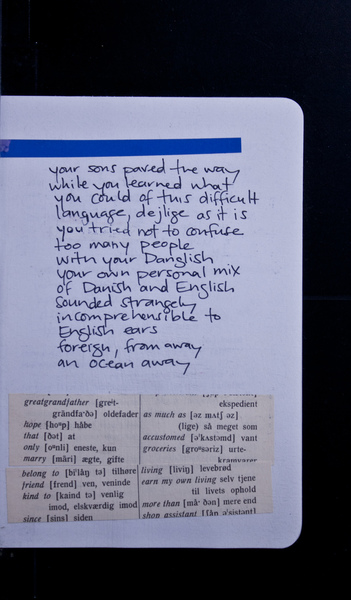 your sons paved the way
while you learned what
you could of this difficult
language, dejlige as it is
you tried not to confuse
too many people
with your Danglish
your own personal mix
of Danish and English
sounded strangely
incomprehensible to
English ears
foreign, from away
an ocean away
greatgrandfather [greᶦt-
grändfa·ðə] oldefader
hope [hoᵘp] håbe
that [ðət] at
only [oᵘnli] eneste, kun
marry [märi] ægte, gifte
belong to [bi'låŋ tə] tilhøre
friend [frend] ven, veninde
kind to [kaind tə] venlig
imod, elskværdig imod
since [sins] siden
ekspedient
as much as [əz mʌtʃ əz]
(lige) så meget som
accustomed [ə'kʌstəmd] vant
groceries [groᵘsəriz] urte-
kramvarer
living [liviŋ] levebrød
earn my own living selv tjene
til livets ophold
more than [må· ðən] mere end
shop assistant [ʃån ə'sistənt]